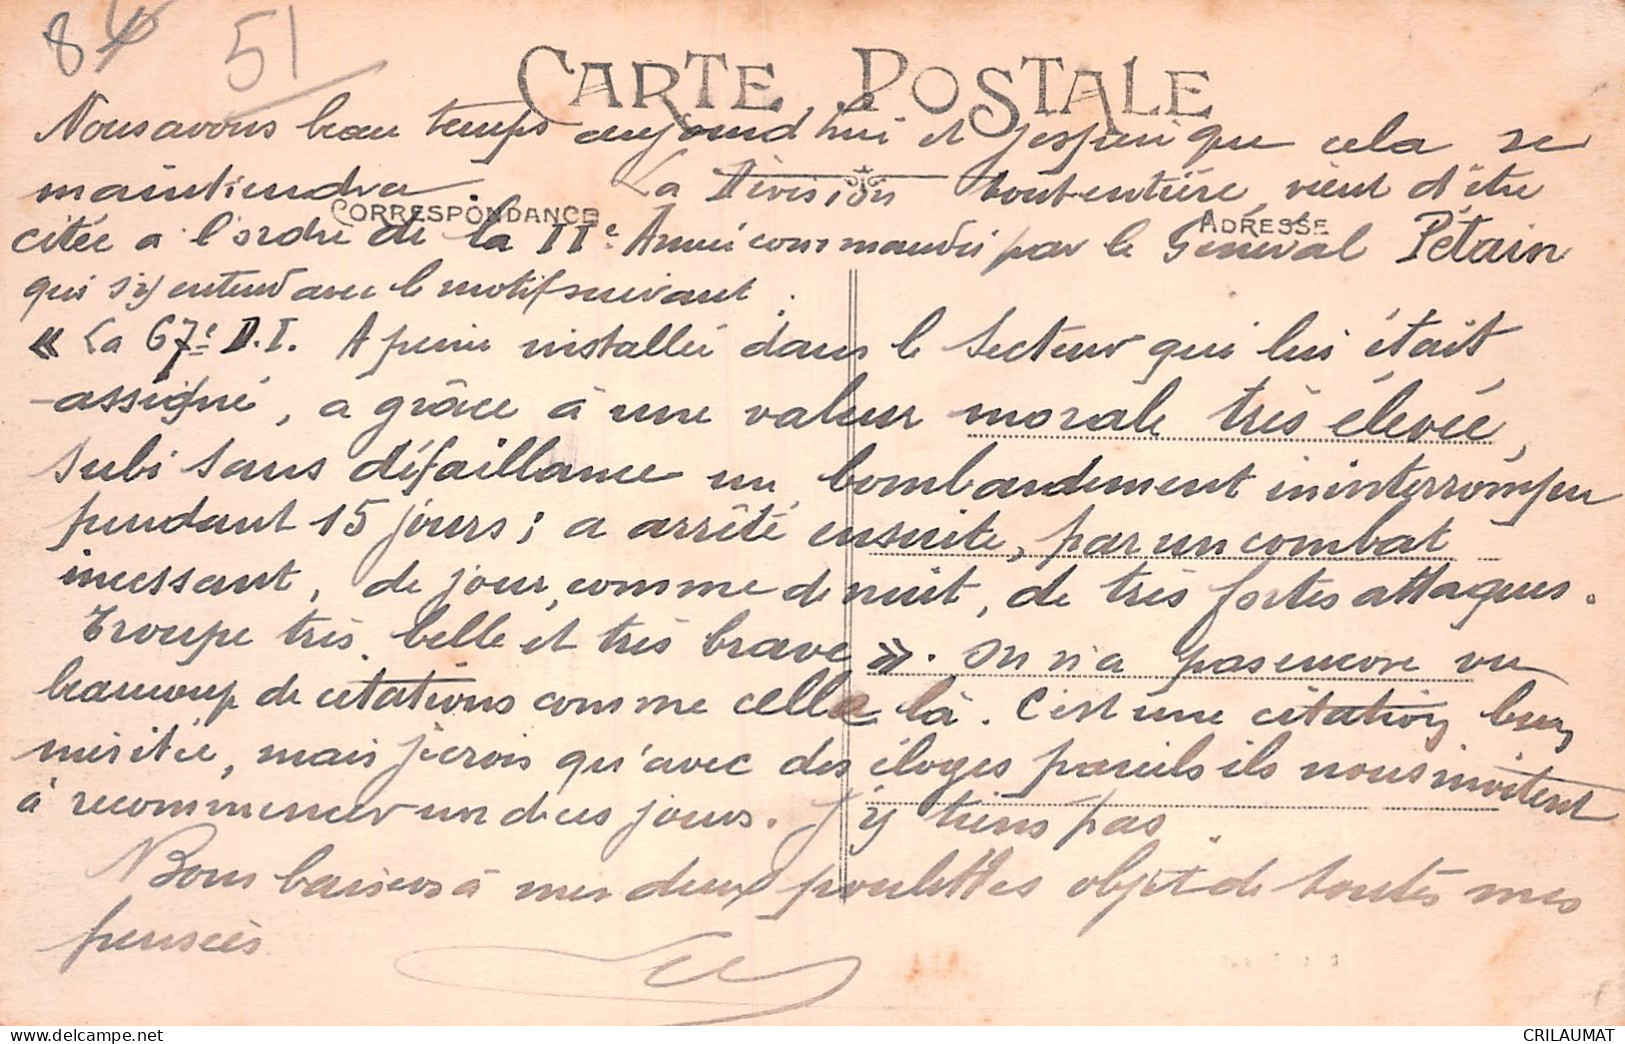 84 51
CARTE POSTALE
Nous avons beau temps aujourd'hui et j'espère que cela se
maintiendra. La Division tout entière, vient d'être
CORRESPONDANCE
ADRESSE
citée à l'ordre de la IIe Armée commandée par le Général Pétain
qui s'y entend avec le motif suivant.
« La 67e D.I. A peine installée dans le secteur qui lui était
assigné, a grâce à une valeur morale très élevée,
subi sans défaillance un bombardement ininterrompu
pendant 15 jours; a arrêté ensuite, par un combat
incessant, de jour, comme de nuit, de très fortes attaques.
Troupe très belle et très brave ». On n'a pas encore vu
beaucoup de citations comme celle là. C'est une citation bien
méritée, mais je crois qu'avec des éloges pareils ils nous invitent
à recommencer un de ces jours. J'y tiens pas.
Bons baisers à mes deux poulettes objet de toutes mes
pensées
CRILAUMAT